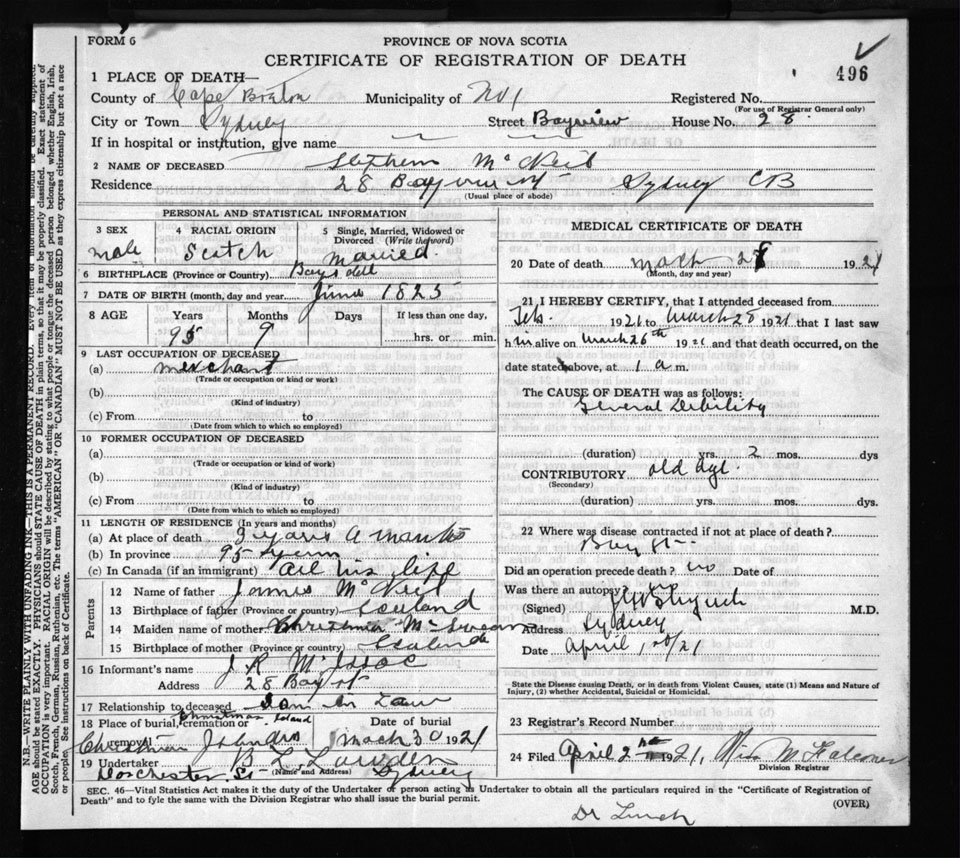 FORM 6
PROVINCE OF NOVA SCOTIA
CERTIFICATE OF REGISTRATION OF DEATH
496
1 PLACE OF DEATH—
County of Cape Breton Municipality of No 1 Registered No.
(For use of Registrar General only)
City or Town Sydney Street Bayview House No. 28
If in hospital or institution, give name
2 NAME OF DECEASED Stephen McNeil
Residence 28 Bayview St Sydney CB
(Usual place of abode)
PERSONAL AND STATISTICAL INFORMATION
3 SEX male
4 RACIAL ORIGIN Scotch
5 Single, Married, Widowed or Divorced (Write the word) Married.
6 BIRTHPLACE (Province or Country)
7 DATE OF BIRTH (month, day and year) June 1825
8 AGE Years Months Days If less than one day,
95 9 hrs. or min.
9 LAST OCCUPATION OF DECEASED
(a) merchant
(Trade or occupation or kind or work)
(b)
(Kind of industry)
(c) From to
(Date from which to which so employed)
10 FORMER OCCUPATION OF DECEASED
(a)
(Trade or occupation or kind or work)
(b)
(Kind of industry)
(c) From to
(Date from which to which so employed)
11 LENGTH OF RESIDENCE (In years and months)
(a) At place of death 3 years
(b) In province 95 years
(c) In Canada (if an immigrant) all his life
Parents
12 Name of father James McNeil
13 Birthplace of father (Province or country)
14 Maiden name of mother
15 Birthplace of mother (Province or country)
16 Informant's name J R McIsaac
Address 28 Bay St
17 Relationship to deceased Son in Law
18 Place of burial, cremation or removal Christmas Island
Date of burial March 30 1921
19 Undertaker B L
Dorchester St (Name and Address) Sydney
MEDICAL CERTIFICATE OF DEATH
20 Date of death March 28 1921
(Month, day and year)
21 I HEREBY CERTIFY, that I attended deceased from
Feb. 1921 to March 28 1921 that I last saw
h im alive on March 26th 1921 and that death occurred, on the
date stated above, at 1 a m.
The CAUSE OF DEATH was as follows:
General Debility
(duration) yrs. 2 mos. dys
CONTRIBUTORY old age
(Secondary)
(duration) yrs. mos. dys.
22 Where was disease contracted if not at place of death?
Bay St
Did an operation precede death? no Date of
Was there an autopsy? no
(Signed) M.D.
Address Sydney
Date April 1, 21
State the Disease causing Death, or in death from Violent Causes, state (1) Means and Nature of
Injury, (2) whether Accidental, Suicidal or Homicidal.
23 Registrar's Record Number
24 Filed April 2nd 1921, Miss M
Division Registrar
SEC. 46—Vital Statistics Act makes it the duty of the Undertaker or person acting as Undertaker to obtain all the particulars required in the "Certificate of Registration of
Death" and to fyle the same with the Division Registrar who shall issue the burial permit.
(OVER)
Dr Lynch
N.B.—WRITE PLAINLY WITH UNFADING INK—THIS IS A PERMANENT RECORD. Every item of information should be carefully supplied.
AGE should be stated EXACTLY. PHYSICIANS should STATE CAUSE OF DEATH in plain terms, so that it may be properly classified. Exact statement of
OCCUPATION is very important. RACIAL ORIGIN will be described by stating to what people or tongue the deceased person belonged whether English, Irish,
Scotch, French, German, Russian, Ruthenian, etc. The terms "AMERICAN" OR "CANADIAN" MUST NOT BE USED as they express citizenship but not a race
or people. See instructions on back of Certificate.